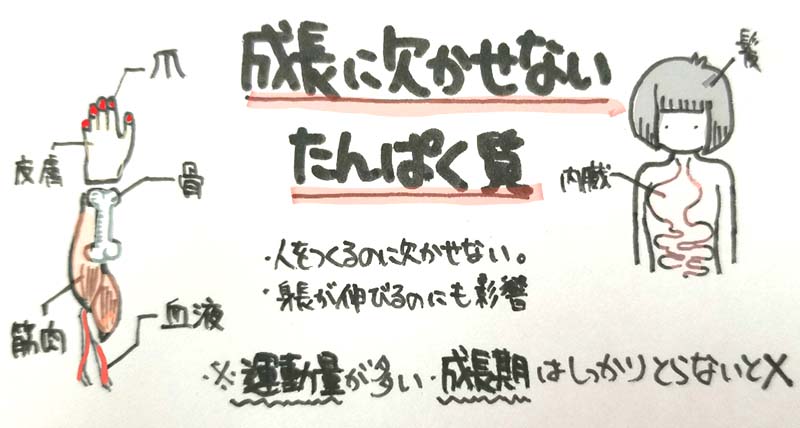 成長に欠かせない
たんぱく質
爪
皮膚
骨
筋肉
血液
髪
内臓
・人をつくるのに欠かせない。
・身長が伸びるのにも影響
・※運動量が多い・成長期はしっかりとらないと×